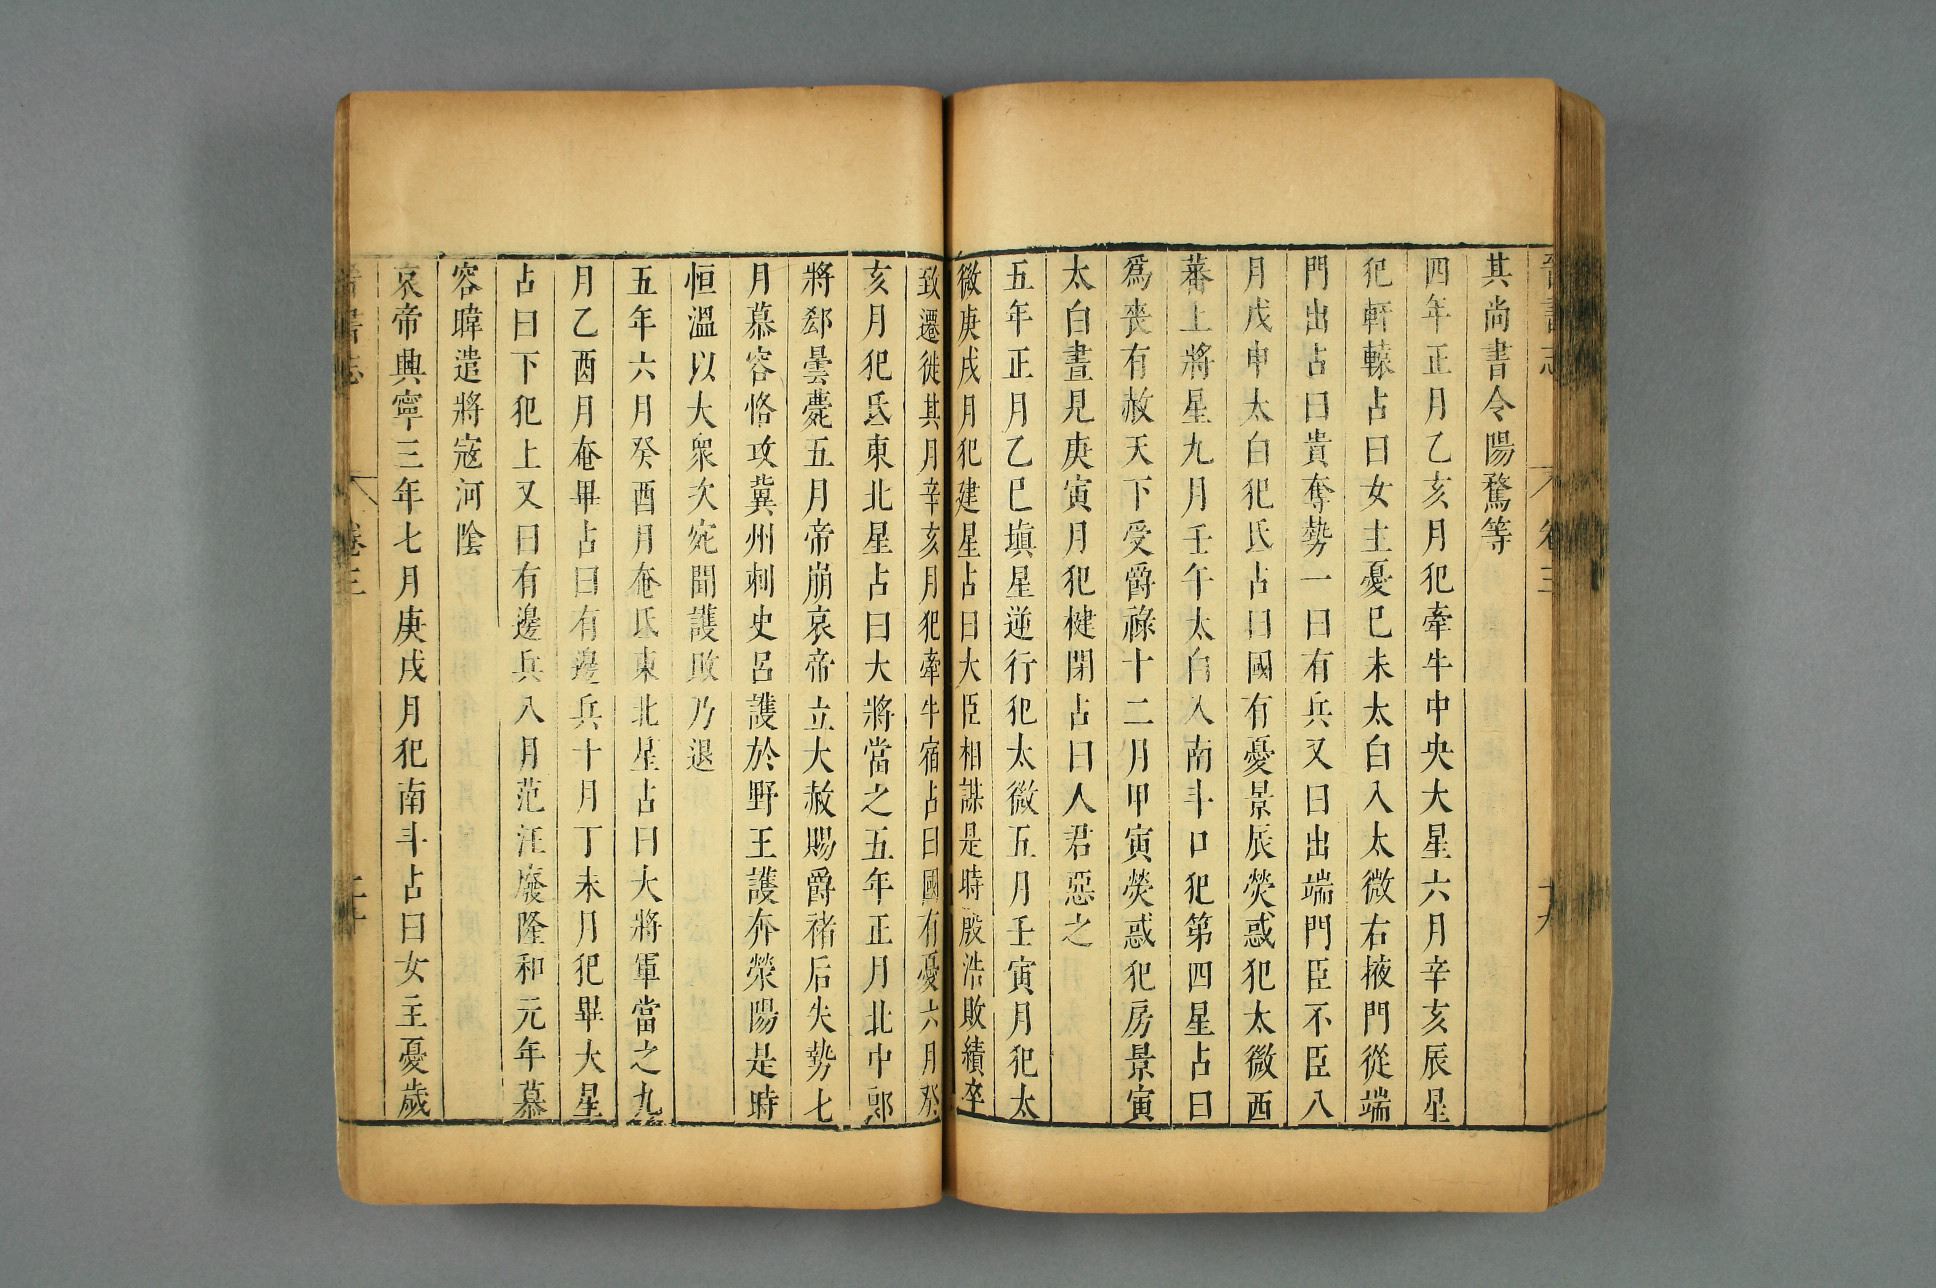 晉書志 卷三 十九
其尚書令陽騖等
四年正月乙亥月犯牽牛中央大星六月辛亥辰星
犯軒轅占曰女主憂巳未太白入太微右掖門從端
門出占曰貴奪勢一曰有兵又曰出端門臣不臣八
月戊申太白犯氐占曰國有憂景辰熒惑犯太微西
蕃上將星九月壬午太白入南斗口犯第四星占曰
爲喪有赦天下受爵祿十二月甲寅熒惑犯房景寅
太白晝見庚寅月犯楗閉占曰人君惡之
五年正月乙巳塡星逆行犯太微五月壬寅月犯太
微庚戌月犯建星占曰大臣相謀是時殷浩敗績卒
致遷徙其月辛亥月犯牽牛宿占曰國有憂六月癸
亥月犯氐東北星占曰大將當之五年正月北中郎
將郄曇薨五月帝崩哀帝立大赦賜爵褚后失勢七
月慕容恪攻冀州刺史呂護於野王護奔滎陽是時
桓溫以大衆次宛聞護敗乃退
五年六月癸酉月奄氐東北星占曰大將軍當之九
月乙酉月奄畢占曰有邊兵十月丁未月犯畢大星
占曰下犯上又曰有邊兵八月范汪廢隆和元年慕
容暐遣將寇河陰
哀帝興寧三年七月庚戌月犯南斗占曰女主憂歲
晉書志 卷三 二十